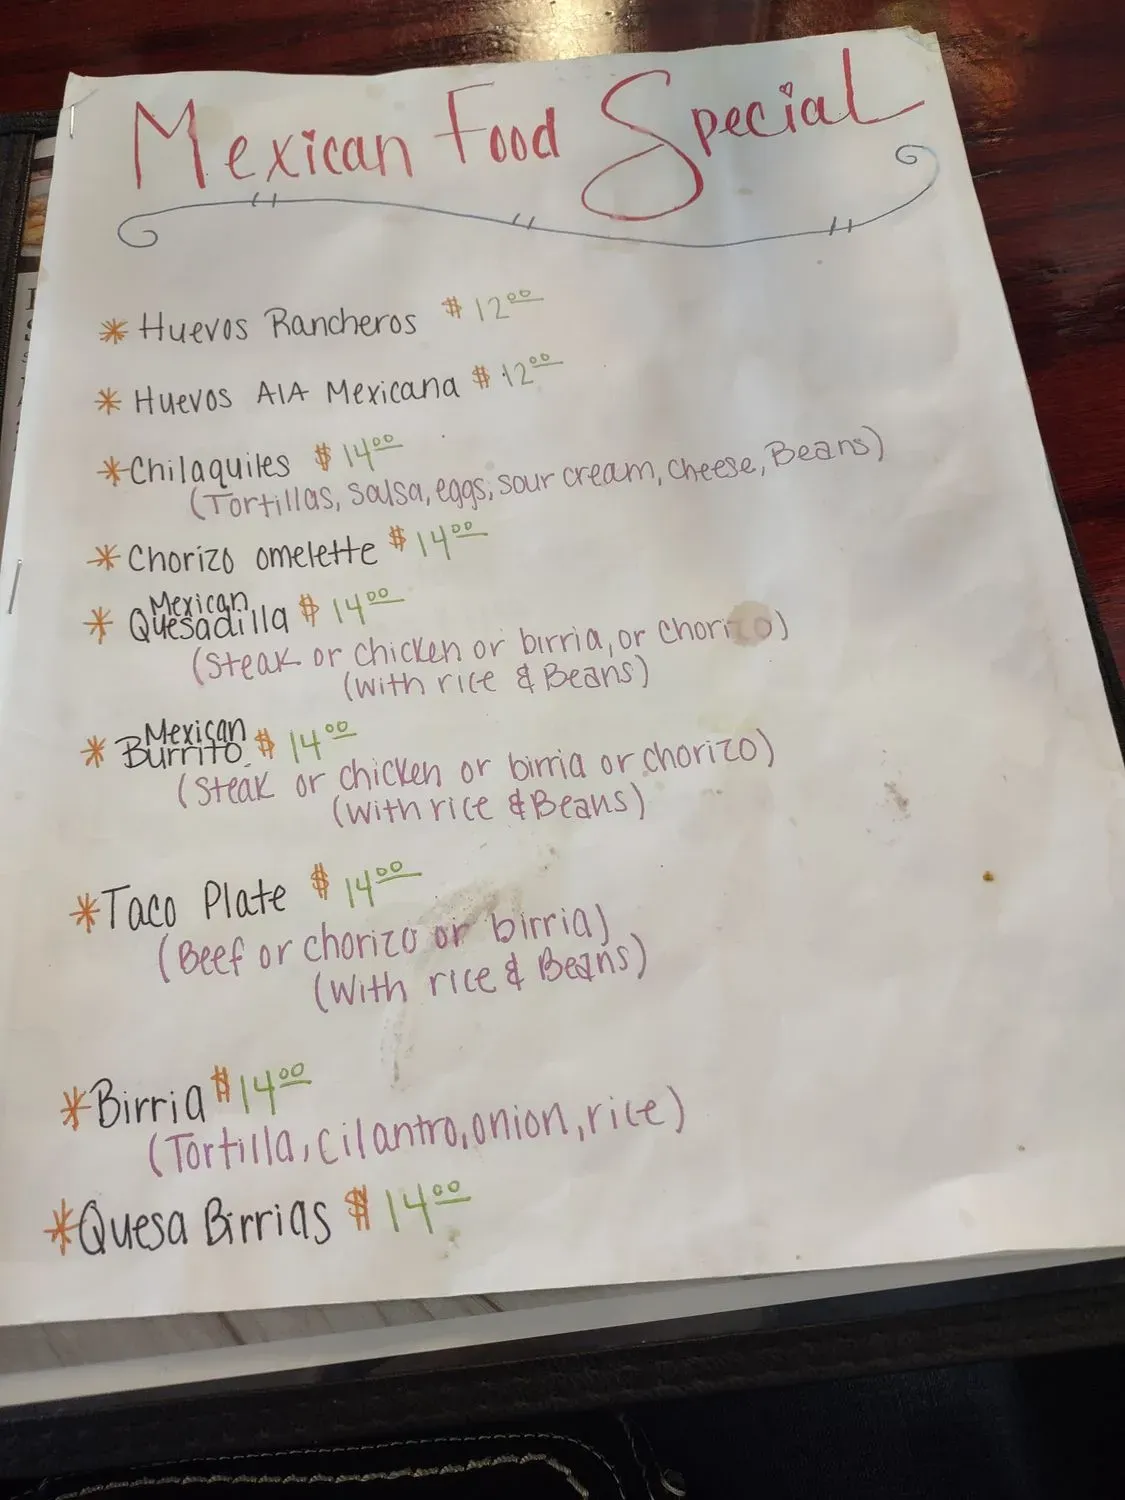 Mexican Food Special
* Huevos Rancheros $ 12⁰⁰
* Huevos AlA Mexicana $ 12⁰⁰
* Chilaquiles $ 14⁰⁰
(Tortillas, salsa, eggs, sour cream, cheese, Beans)
* Chorizo omelette $ 14⁰⁰
* Mexican
Quesadilla $ 14⁰⁰
(Steak or chicken or birria, or chorizo)
(with rice & Beans)
* Mexican
Burrito $ 14⁰⁰
(Steak or chicken or birria or chorizo)
(with rice & Beans)
* Taco Plate $ 14⁰⁰
(Beef or chorizo or birria)
(With rice & Beans)
* Birria $ 14⁰⁰
(Tortilla, cilantro, onion, rice)
* Quesa Birrias $ 14⁰⁰